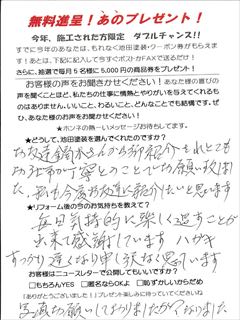 無料進呈！あのプレゼント！
今年、施工された方限定　ダブルチャンス!!
すでに今年のあなたは、もれなく池田塗装・クーポン券がもらえま
す！あとは、下記に記入して今すぐポストかFAXで送るだけ！
さらに、抽選で毎月5名様に5,000円の商品券をプレゼント！
お客様の声をお聞きかせください！あなた様の喜びの
声を聞くことほど、私たちの仕事に情熱とやりがいを与えてくれるも
のはありません。いいこと、わるいこと、どんなことでも結構です。ぜ
ひ、あなた様のお声をお聞かせください！
★ホンネの熱～いメッセージお待ちしてます。
★どうして、池田塗装を選んでくれたのですか？
お友達
さんから
紹介
とても
お仕事が丁寧とのことでお願い致しま
した 私も今度お友達に紹介したいと思います
★リフォーム後の今のお気持ちを教えて？
毎日気持的に楽しく過すことが
出来て感謝しています ハガキ
すっかり遅くなり申し訳なく思ています
お客様はニュースレターで公開してもいいですか？
□もちろんYES　□匿名ならOKよ　□恥ずかしいからだめ
「ありがとうございました！」プレゼント楽しみに待っていてくださいね
写真
お願いして